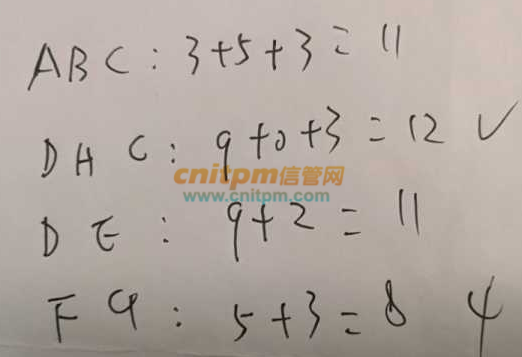 ABC: 3+5+3=11
DHC: 9+0+3=12 √
cnitpm信管网
www.cnitpm.com
DE: 9+2=11
FG: 5+3=8 4